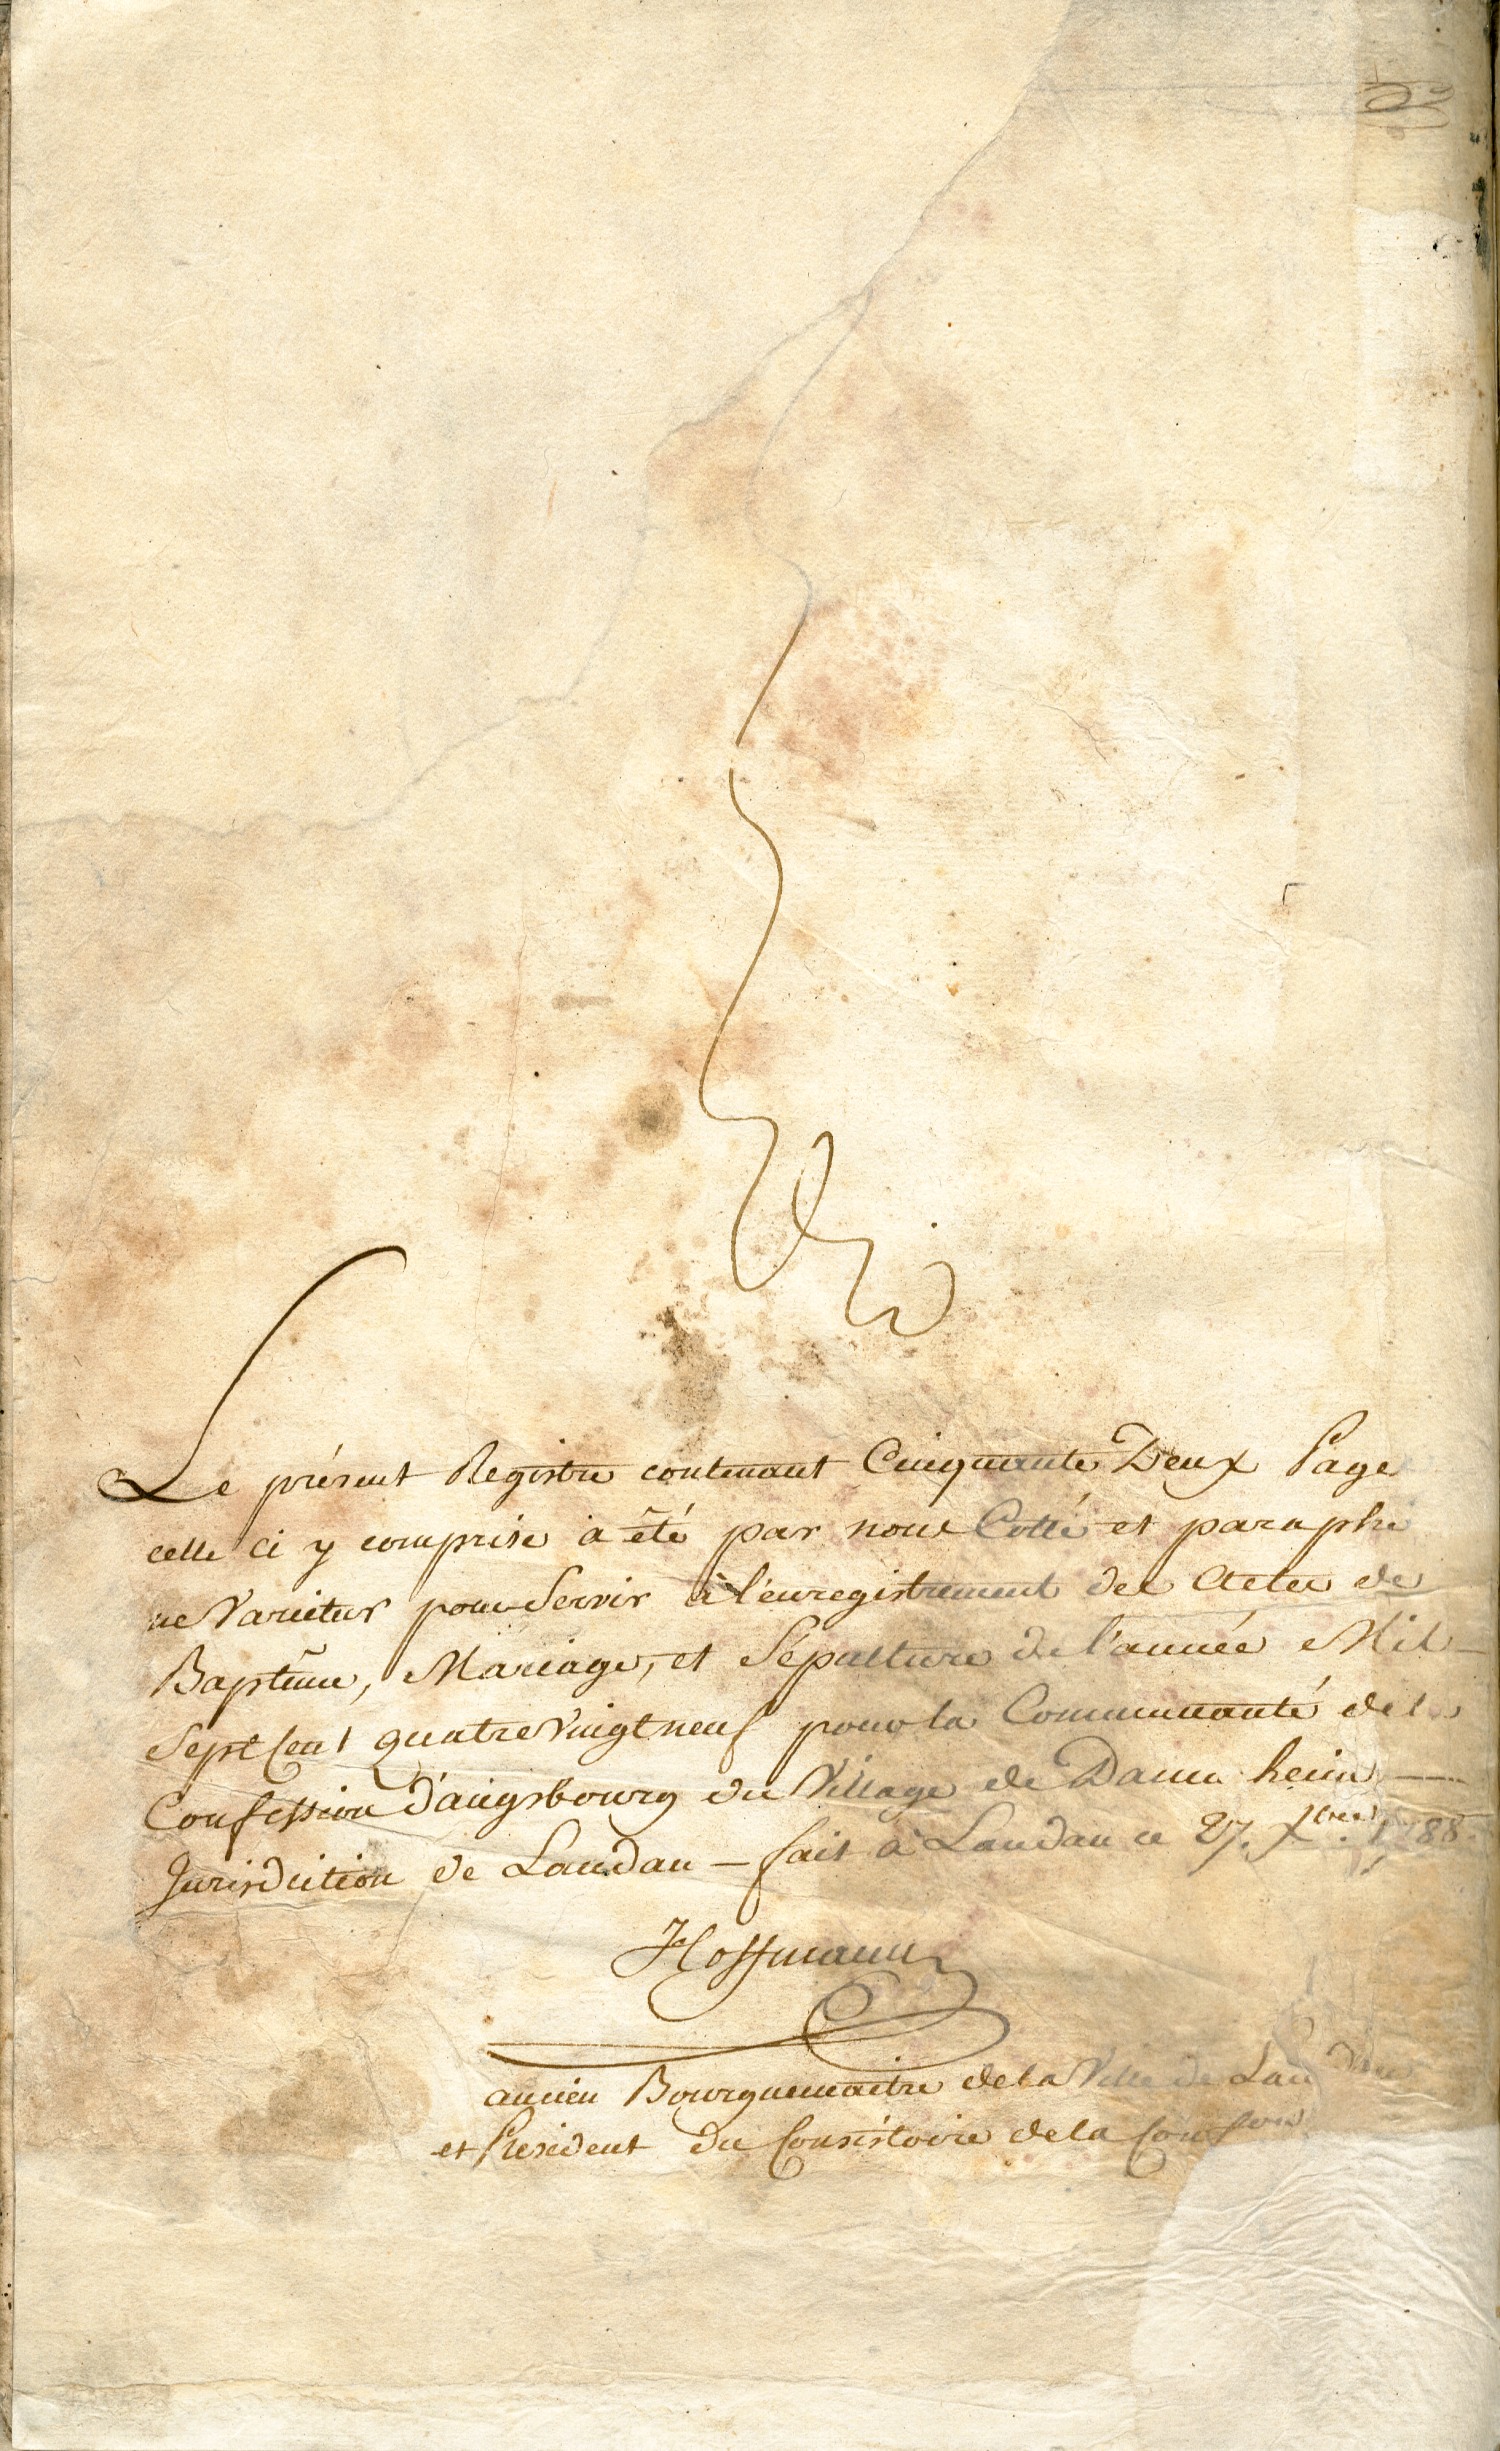 Le présent Registre contenant Cinquante Deux Page
celle ci y comprise à été par nous Cotté et paraphé
ne Varietur pour Servir à l'enregistrement des Actes de
Baptême, Mariage, et Sépulture de l'année Mil
Sept Cent quatre Vingt neuf pour la Communauté de la
Confession d'augsbourg du Village de Damheim
Jurisdiction de Landau – fait à Landau ce 27. Xbre 1788.
Hoffmann
ancien Bourguemaitre de la Ville de Landau
et President du Consistoire de la Conf